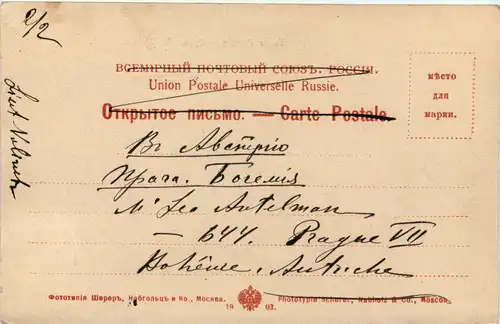 2/2
ВСЕМІРНЫЙ ПОЧТОВЫЙ СОЮЗЪ. РОССІЯ.
Union Postale Universelle Russie.
Открытое письмо. — Carte Postale.
мѣсто
для
марки.
Въ Австрію
Прага. Богемія
Mr Leo Antelman
— 644. Prague VII
Bohême, Autriche
Фототипія Шереръ, Набгольцъ и Ко., Москва.
Phototypie Scherer, Nabholz & Co., Moscou
19 03.